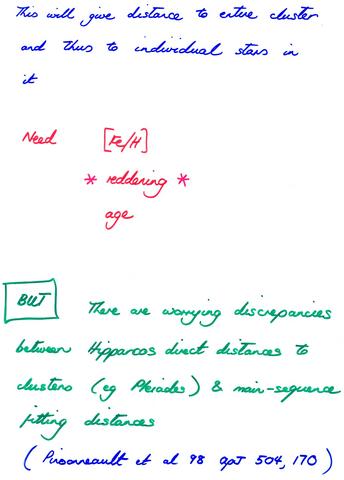 This will give distance to entire cluster
and thus to individual stars in
it
Need [Fe/H]
* reddening *
age
BUT There are worrying discrepancies
between Hipparcos direct distances to
clusters (eg Pleiades) & main-sequence
fitting distances
(Pinsonneault et al 98 apJ 504, 170)